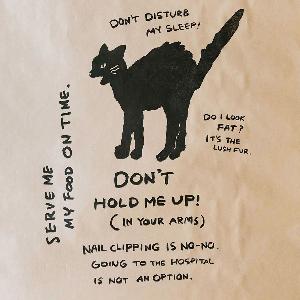 DON'T DISTURB
MY SLEEP!
DO I LOOK
FAT?
IT'S THE
LUSH FUR.
SERVE ME
MY FOOD ON TIME.
DON'T
HOLD ME UP!
(IN YOUR ARMS)
NAIL CLIPPING IS NO-NO.
GOING TO THE HOSPITAL
IS NOT AN OPTION.